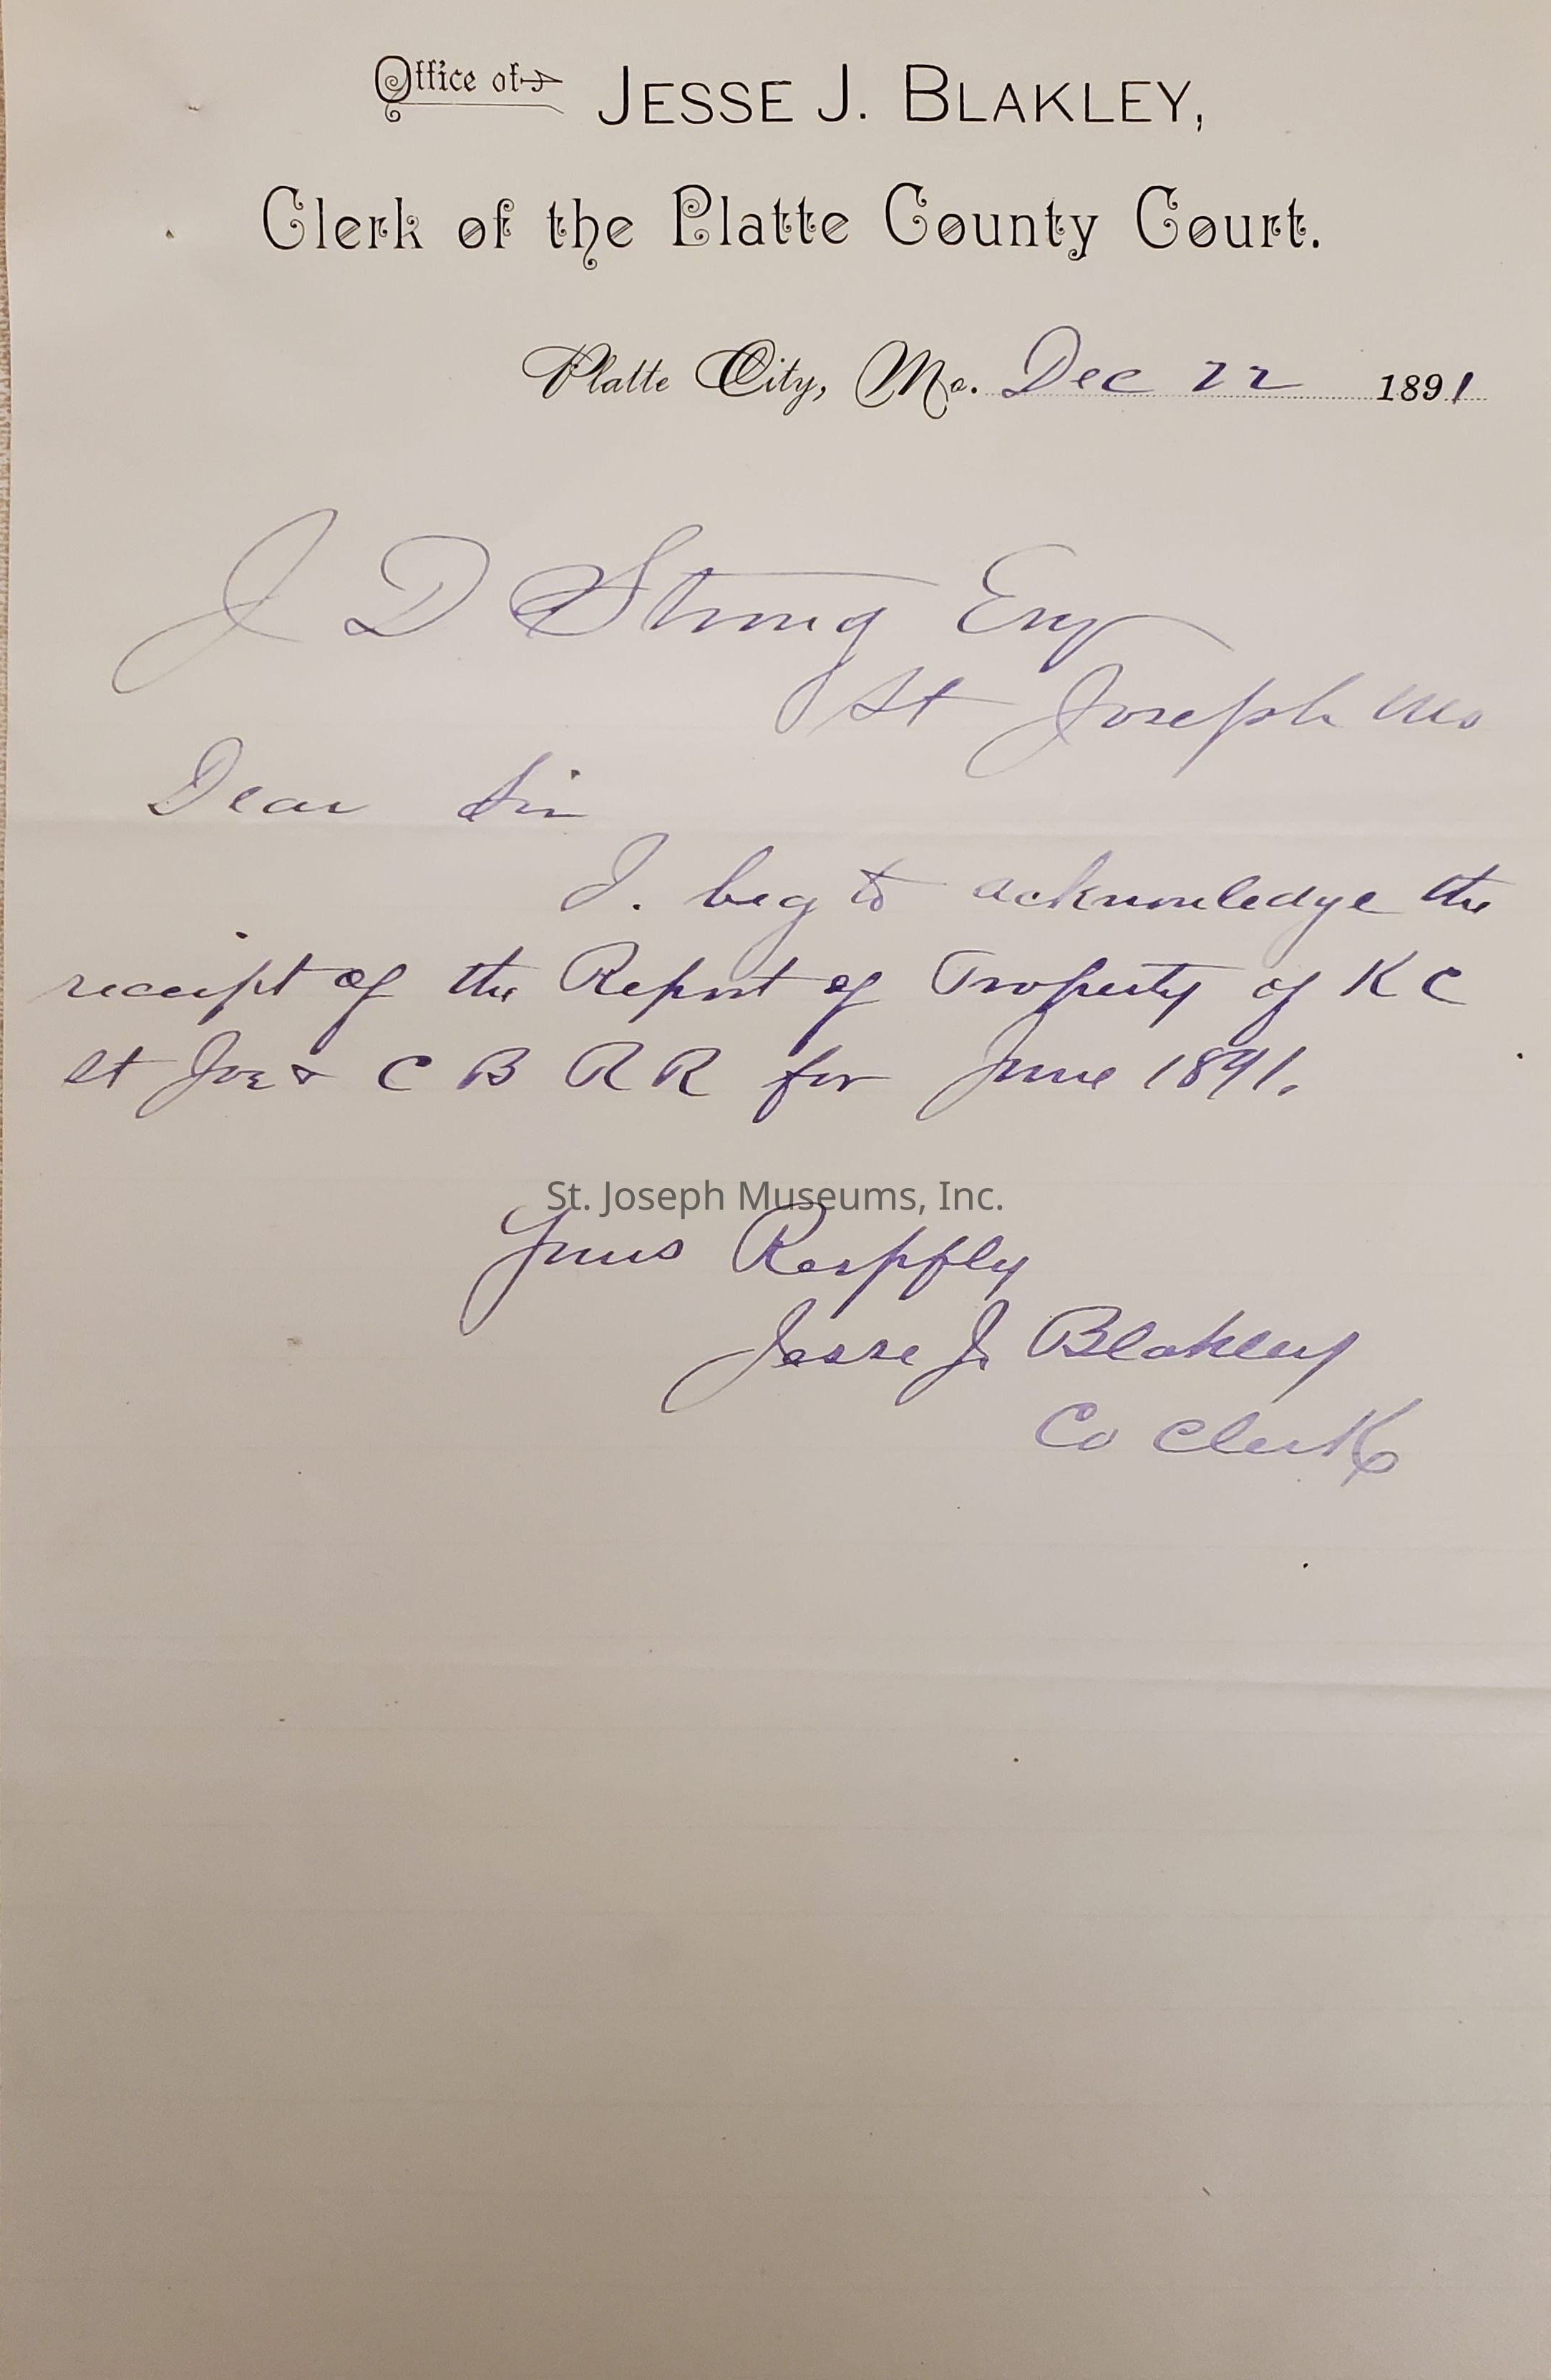 Office of JESSE J. BLAKLEY,
Clerk of the Platte County Court.
Platte City, Mo. Dec 22 1891
J D Strong Esq
St Joseph Mo
Dear Sir
I. beg to acknowledge the
receipt of the Report of Property of K C
St Joe & C B R R for June 1891.
St. Joseph Museums, Inc.
Yours Respfly
Jesse J. Blakley
Co Clerk